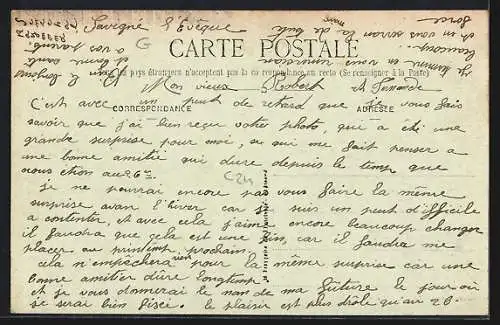 Savigné l'Evêque
CARTE POSTALE
pays étrangers n'acceptent pas la correspondance au recto (Se renseigner à la Poste)
Mon vieux Robert et Fernande
CORRESPONDANCE
ADRESSE
C'est avec un peut de retard que je vous fais
savoir que j'ai bien reçu votre photo, qui a été une
grande surprise pour moi, ce qui me fait penser a
une bonne amitié qui dure depuis le temps que
nous étion au 26e.
C24
je ne pourrai encore pas vous faire la même
surprise avan l'hiver car je suis un peut difficile
a contenter, et avec cela j'aime encore beaucoup changer
il faudra que cela est une fin, car il faudra me
placer au printemp prochain
cela n'empêchera rien pour la même surprise car une
bonne amitier dure longtemp
et je vous donnerai le nom de ma future le jour ou
je serai bien fixé. le plaisir est plus drôle qu'au 26.